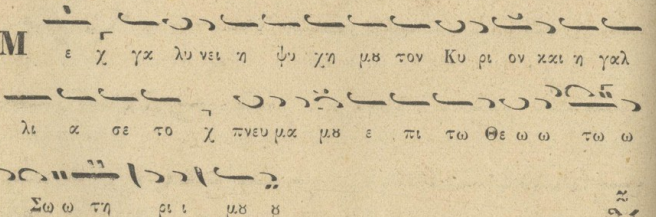 Μ ε χ γα λυ νει η ψυ χη μȣ τον Κυ ρι ον και η γαλ
λι α σε το χ πνευ μα μȣ ε πι τω Θε ω ω τω ω
Σω ω τη ρι ι μȣ ȣ